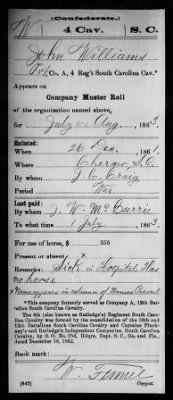 (Confederate.)
W 4 Cav. S. C.
John Williams
Pvt, Co. A, 4 Reg't South Carolina Cav.*
Appears on
Company Muster Roll
of the organization named above,
for July & Aug, 1863.
Enlisted:
When 26 Dec, 1861.
Where Cheraw, S.C.
By whom J. C. Craig
Period War
Last paid:
By whom J. W. McCurrie
To what time 1 July, 1863.
For use of horse, $
Present or absent
Remarks: Sick in Hospital, Has
no horse
Name appears in column of Names Present
*This company formerly served as Company A, 12th Battalion South Carolina Cavalry.
The 4th (also known as Rutledge's) Regiment South Carolina
Cavalry was formed by the consolidation of the 10th and 12th
Battalions South Carolina Cavalry and Captains Pinckney's
and Rutledge's Independent Companies, South Carolina
Cavalry, by S. O. No. Hdqrs. Dept. S. C., Ga. and Fla.,
dated December 16, 1862.
Book mark:
(642) Copyist.